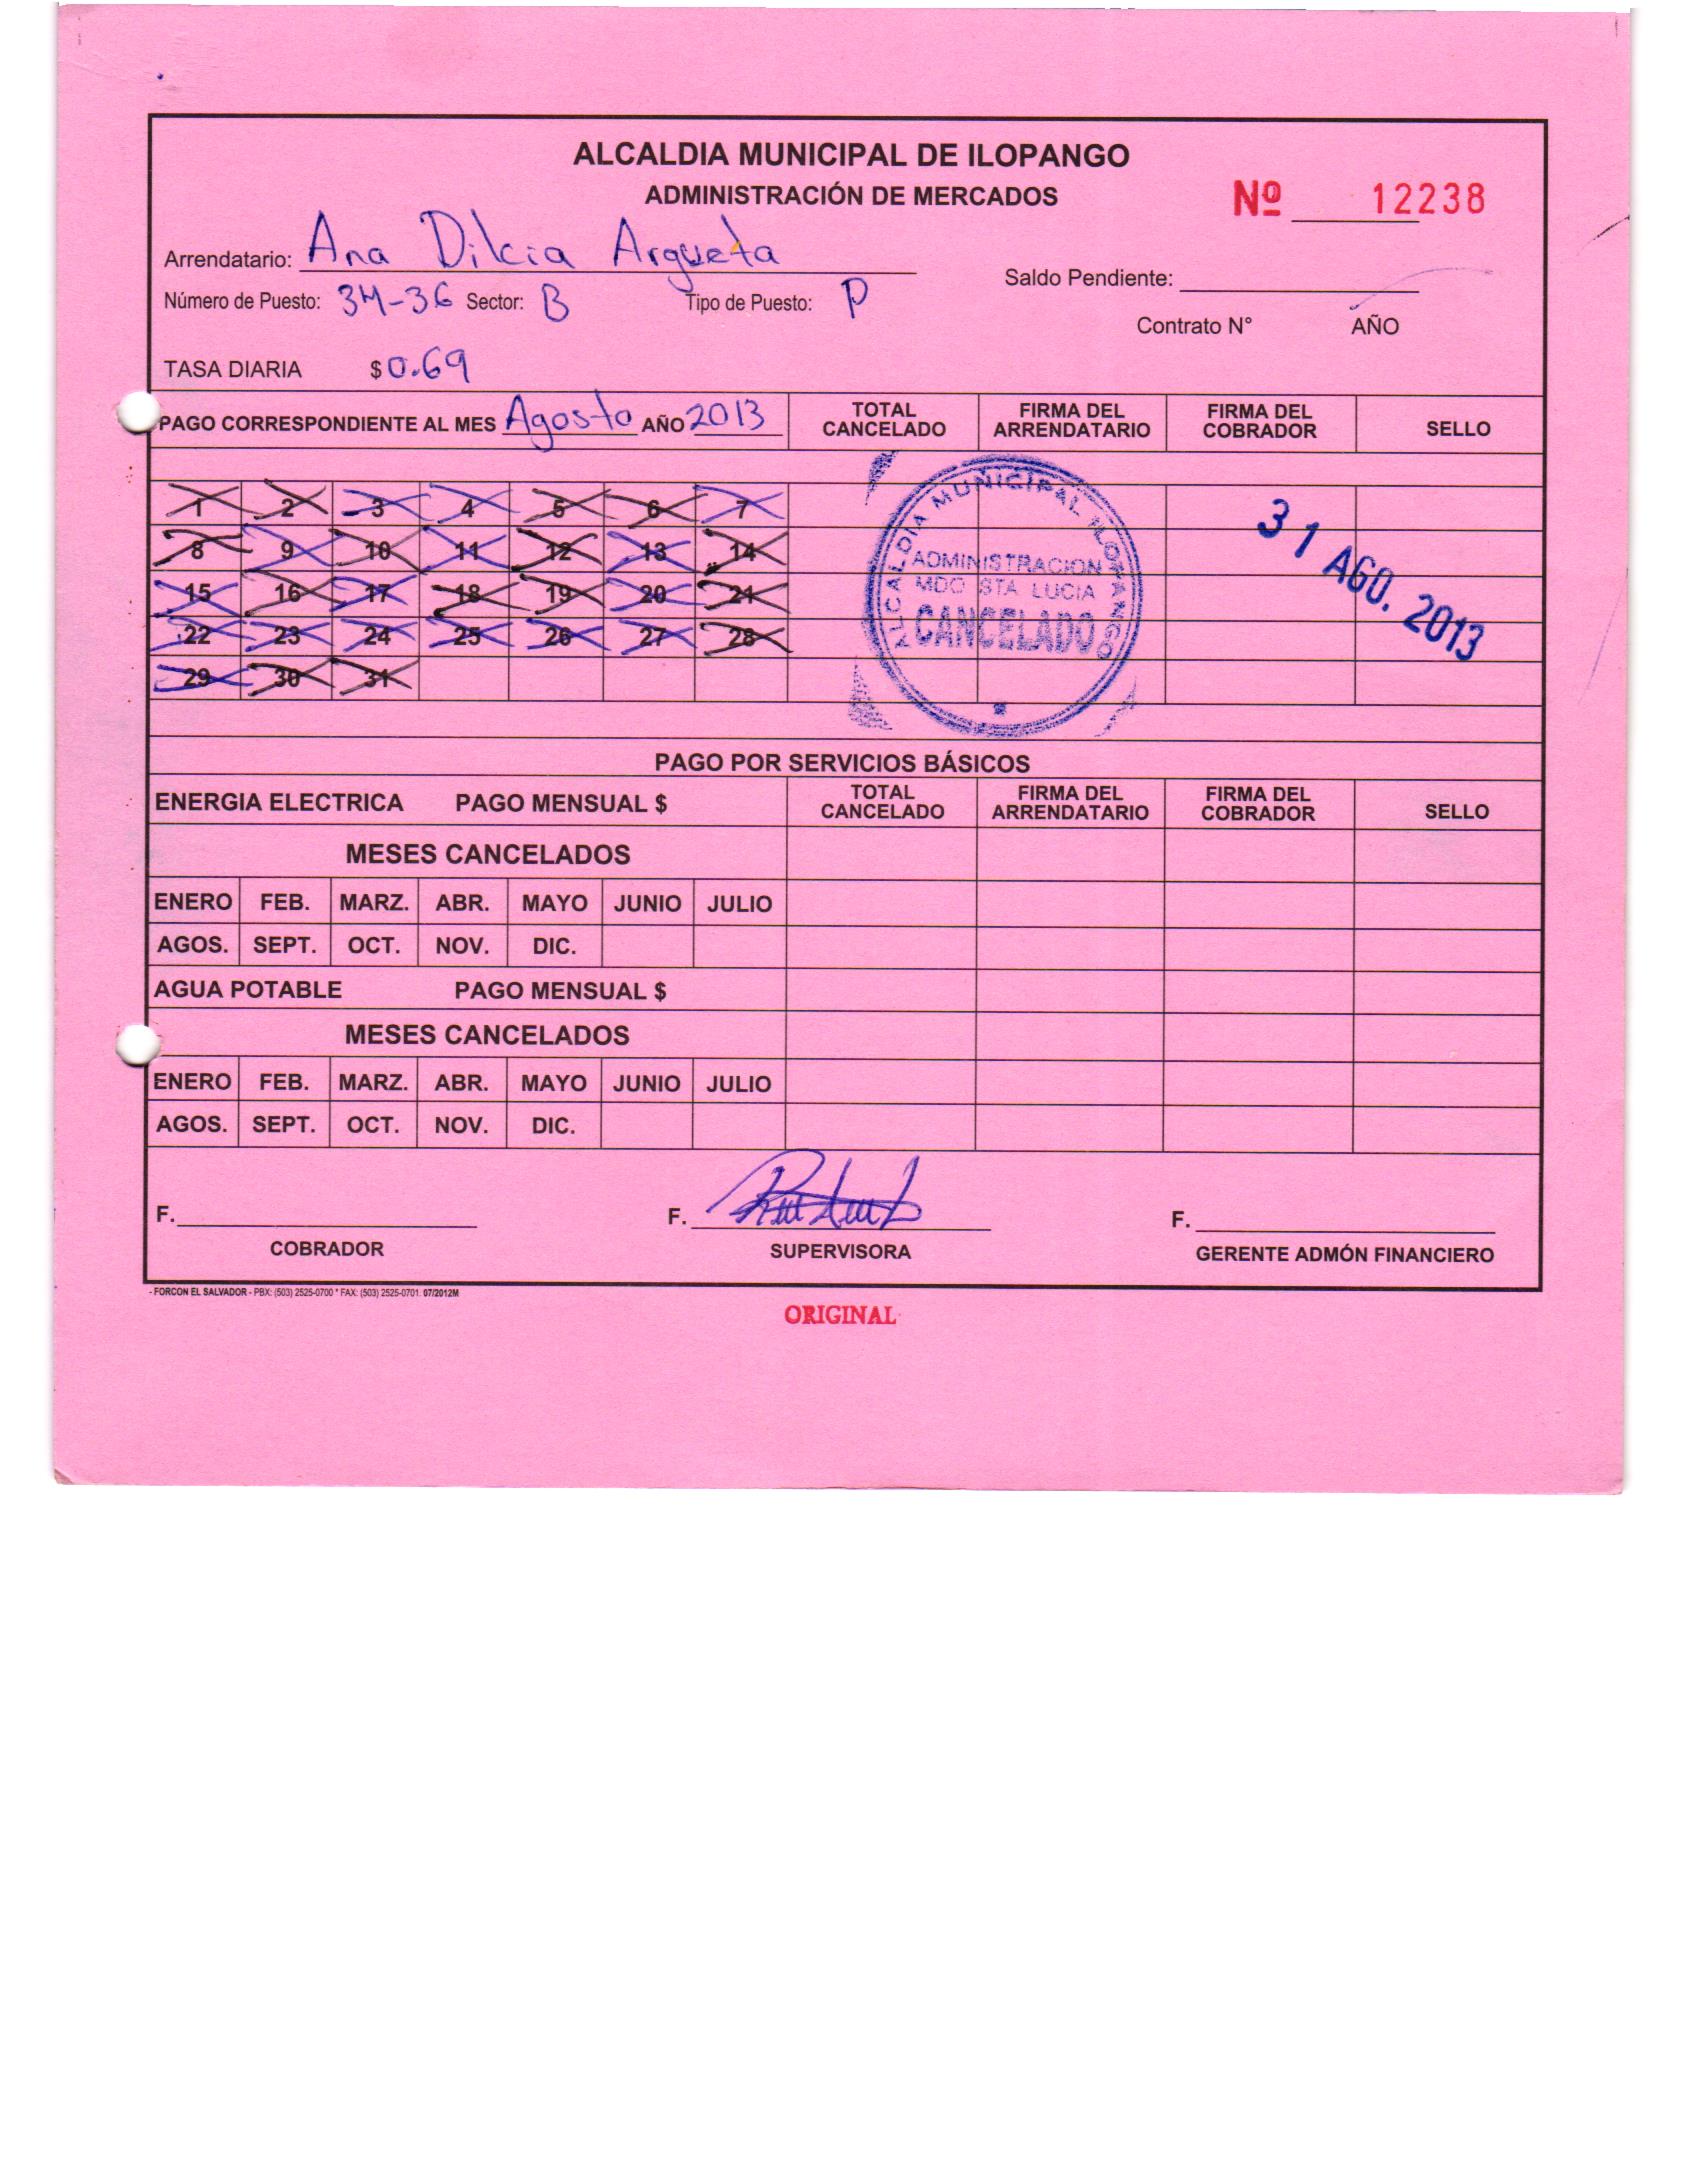 ALCALDIA MUNICIPAL DE ILOPANGO
ADMINISTRACIÓN DE MERCADOS
Nº 12238
Arrendatario: Ana Dilcia Argueta
Saldo Pendiente:
Número de Puesto: 34-36 Sector: B Tipo de Puesto: P
Contrato N° AÑO
TASA DIARIA $0.69
PAGO CORRESPONDIENTE AL MES Agosto AÑO 2013 TOTAL CANCELADO FIRMA DEL ARRENDATARIO FIRMA DEL COBRADOR SELLO
1 2 3 4 5 6 7
8 9 10 11 12 13 14
15 16 17 18 19 20 21
22 23 24 25 26 27 28
29 30 31
ALCALDIA MUNICIPAL ILOPANGO
ADMINISTRACION
MDO STA LUCIA
CANCELADO
31 AGO. 2013
PAGO POR SERVICIOS BÁSICOS
ENERGIA ELECTRICA PAGO MENSUAL $ TOTAL CANCELADO FIRMA DEL ARRENDATARIO FIRMA DEL COBRADOR SELLO
MESES CANCELADOS
ENERO FEB. MARZ. ABR. MAYO JUNIO JULIO
AGOS. SEPT. OCT. NOV. DIC.
AGUA POTABLE PAGO MENSUAL $
MESES CANCELADOS
ENERO FEB. MARZ. ABR. MAYO JUNIO JULIO
AGOS. SEPT. OCT. NOV. DIC.
F. F. F.
COBRADOR SUPERVISORA GERENTE ADMÓN FINANCIERO
- FORCON EL SALVADOR - PBX: (503) 2525-0700 * FAX: (503) 2525-0701. 07/2012M
ORIGINAL